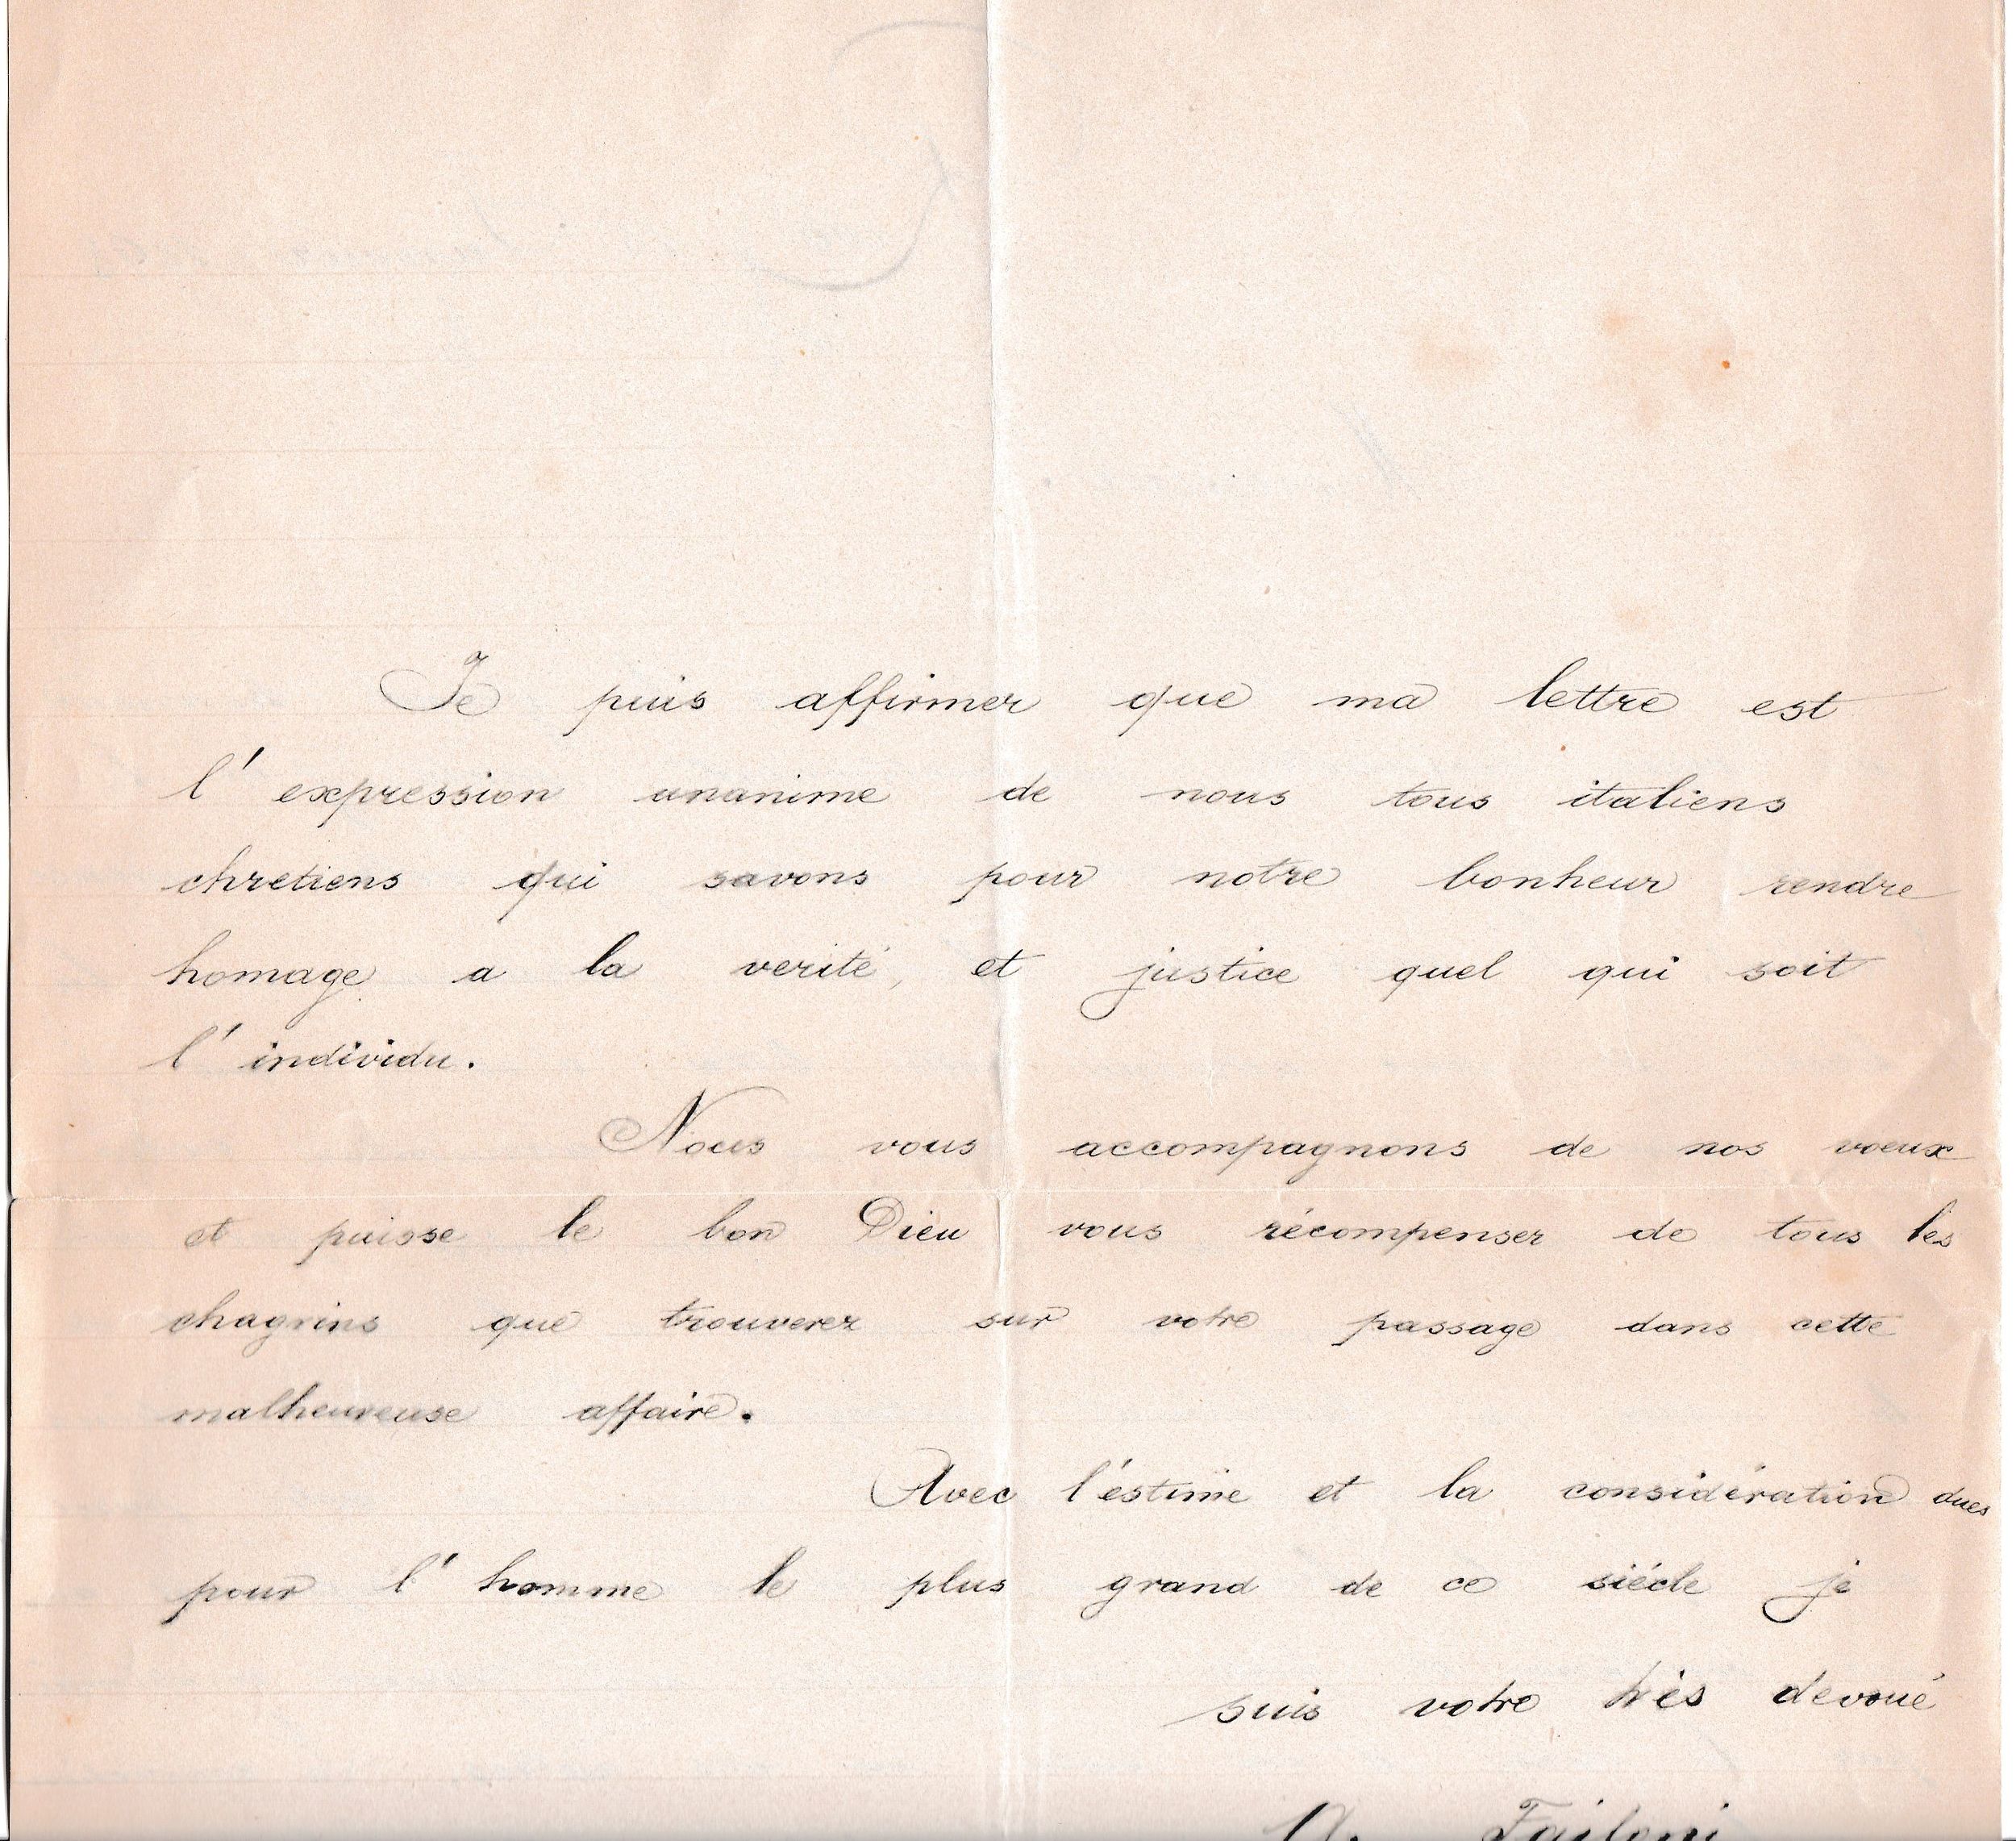 Je puis affirmer que ma lettre est
l' expression unanime de nous tous italiens
chretiens qui savons pour notre bonheur rendre
homage a la verité, et justice quel qui soit
l' individu.
Nous vous accompagnons de nos voeux
et puisse le bon Dieu vous récompenser de tous les
chagrins que trouverez sur votre passage dans cette
malheureuse affaire.
Avec l'éstime et la considération dues
pour l' homme le plus grand de ce siécle je
suis votre très devoué